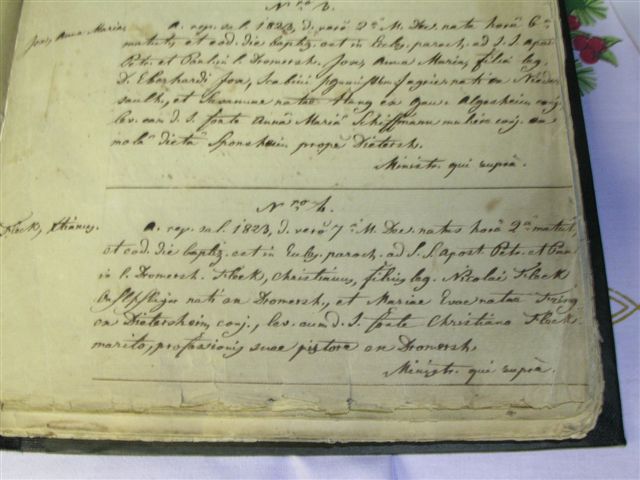 N ro 3.
Jox, Anna Maria,
A. rep. sal. 1823, d. vero 2a M. Dec. nata horâ 6ta
matut, et eod. die baptiz. est in Eccles. paroch. ad S. S. apost.
Petr. et Paul. in Dromersh. Jox, Anna Maria, filia leg.
D. Eberhardi Jox, nati on Nieder
saulh., et Susannae natae Hang ex Gau-Algesheim conj.
lev. eam d. S. fonte Annâ Mariâ Schiffmann muliere conj. on
molâ dictâ Sponsheim prope Dietersh.
Ministr. qui suprà.
N ro 4.
Fleck, Christianus.
A. rep. sal. 1823, d. vero 7a M. Dec. natus horâ 2a matut,
et eod. die baptiz. est in Eccles. paroch. ad S. S. apost. Petr. et Pau
in Dromersh. Fleck, Christianus, filius leg. Nicolai Fleck
nati on Dromersh., et Mariae Evae natae
on Dietersheim, conj., lev. eum d. S. fonte Christiano Fleck
marito, professionis suae pistore on Dromersh.
Ministr. qui suprà.